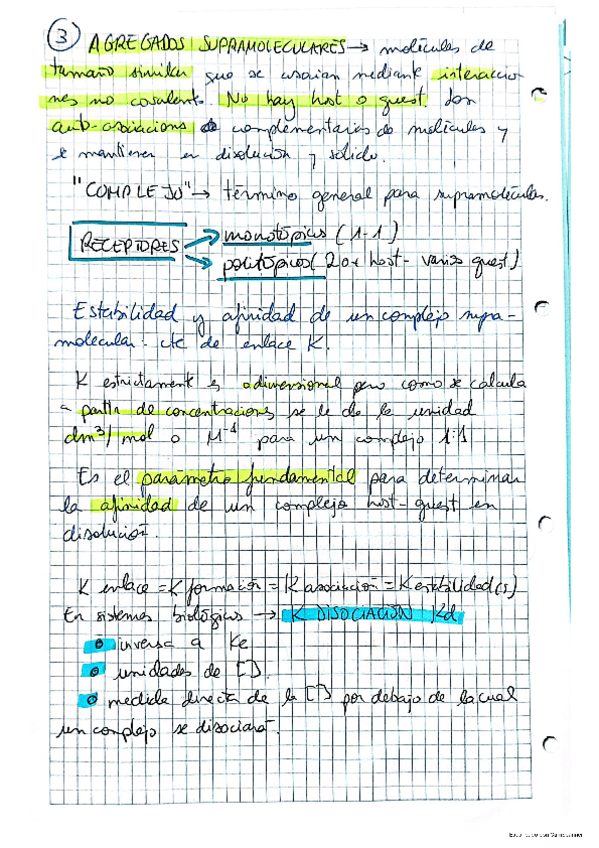 ③ AGREGADOS SUPRAMOLECULARES → moléculas de
tamaño similar que se asocian mediante interaccio-
nes no covalents. No hay host o guest. Son
auto-asociacions de complementarias de moléculas y
se mantienen en disolución y sólido.
"COMPLEJO" → término general para supramoléculas.
RECEPTORES
monotópicos (1-1)
politópicos (2 o + host - varios guest)
Estabilidad y afinidad de un complejo supra-
molecular: cte de enlace K.
K estrictamente es adimensional pero como se calcula
a partir de concentracions se le da la unidad
dm³/mol o M⁻¹ para un complejo 1:1
Es el parámetro fundamental para determinar
la afinidad de un complejo host-guest en
disolución.
K enlace = K formación = K asociación = K estabilidad (s)
En sistemas biológicos → K DISOCIACIÓN Kd
inversa a Ke
unidades de [ ].
medida directa de la [ ] por debajo de la cual
un complejo se disociará.